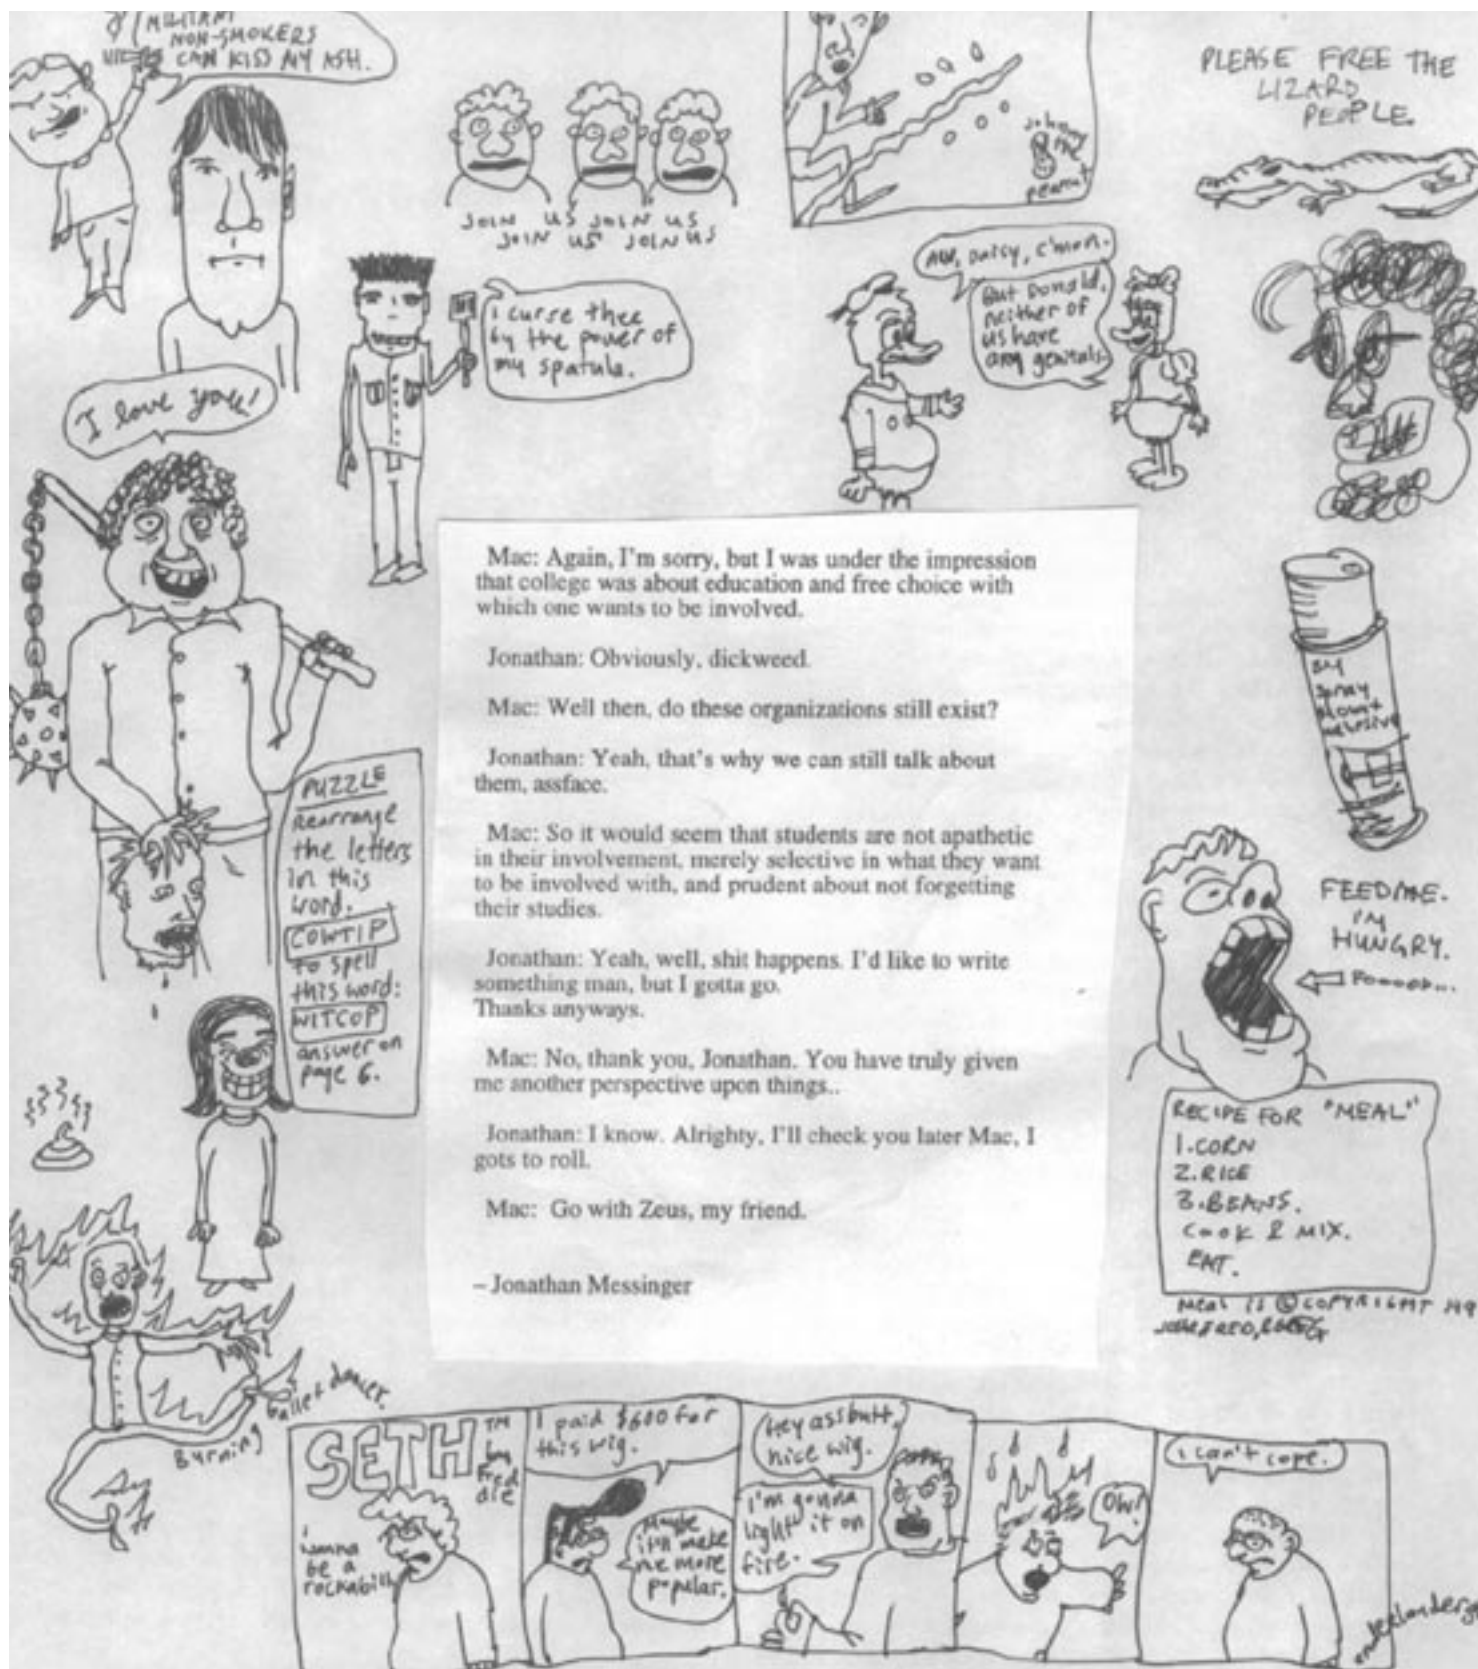 MILITANT
NON-SMOKERS
CAN KISS MY ASH.
JOIN US JOIN US
JOIN US JOIN US
Johnny
the
peanut
PLEASE FREE THE
LIZARD
PEOPLE.
i curse thee
by the power of
my spatula.
Aw, Daisy, c'mon.
But Donald,
neither of
us have
any genitals.
I love you!
Mac: Again, I'm sorry, but I was under the impression
that college was about education and free choice with
which one wants to be involved.
Jonathan: Obviously, dickweed.
Mac: Well then, do these organizations still exist?
Jonathan: Yeah, that's why we can still talk about
them, assface.
Mac: So it would seem that students are not apathetic
in their involvement, merely selective in what they want
to be involved with, and prudent about not forgetting
their studies.
Jonathan: Yeah, well, shit happens. I'd like to write
something man, but I gotta go.
Thanks anyways.
Mac: No, thank you, Jonathan. You have truly given
me another perspective upon things..
Jonathan: I know. Alrighty, I'll check you later Mac, I
gots to roll.
Mac: Go with Zeus, my friend.
– Jonathan Messinger
Spray
Mount
Adhesive
PUZZLE
Rearrange
the letters
in this
word.
COWTIP
to spell
this word:
WITCOP
answer on
page 6.
FEED ME.
I'M
HUNGRY.
RECIPE FOR "MEAL"
1. CORN
2. RICE
3. BEANS.
COOK & MIX.
EAT.
Meal is © COPYRIGHT
Burning
ballet dancer.
SETH TM
by
Fred
die
i
wanna
be a
I paid $600 for
this wig.
Maybe
it'll make
me more
popular.
Hey assbutt,
nice wig.
I'm gonna
light it on
fire.
OW!
i can't cope.